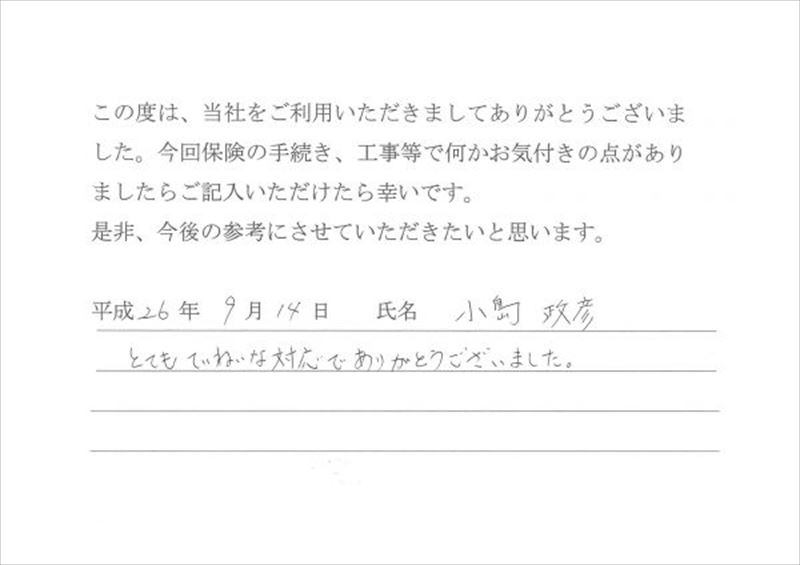 この度は、当社をご利用いただきましてありがとうございま
した。今回保険の手続き、工事等で何かお気付きの点があり
ましたらご記入いただけたら幸いです。
是非、今後の参考にさせていただきたいと思います。
平成26年 9月14日 氏名 小島 政彦
とてもていねいな対応でありがとうございました。